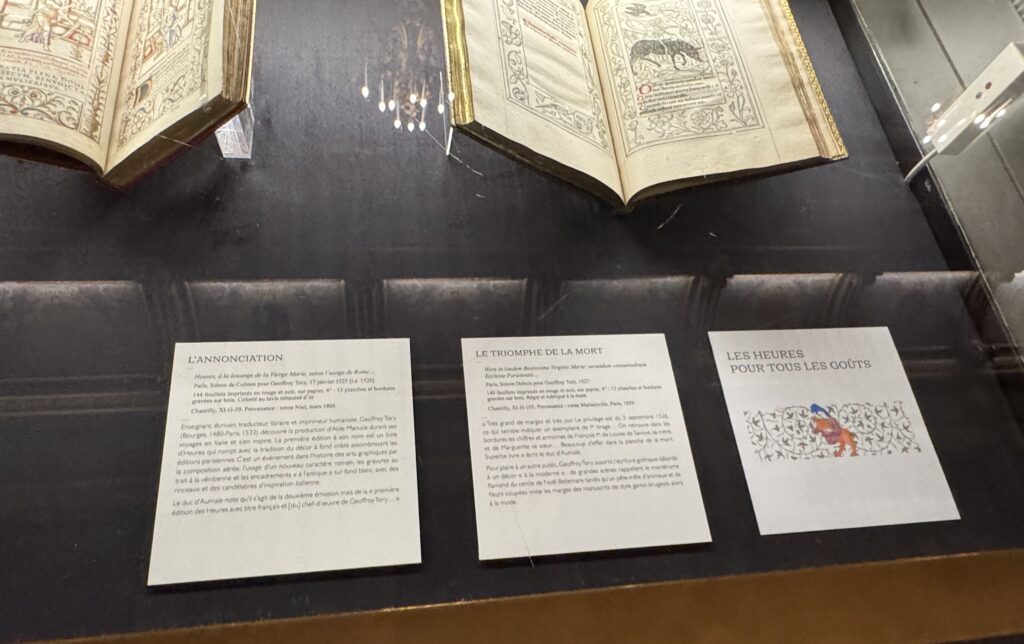 L'ANNONCIATION
Heures, à la louange de la Vierge Marie, selon l'usage de Rome ...
Paris, Simon de Colines pour Geoffroy Tory, 17 janvier 1525 [i.e. 1526]
144 feuillets imprimés en rouge et noir, sur papier, 4° : 13 planches et bordures
gravées sur bois. Colorié au lavis rehaussé d'or
Chantilly, XI-G-39. Provenance : vente Niel, mars 1860.
Enseignant, écrivain, traducteur, libraire et imprimeur humaniste, Geoffroy Tory
(Bourges, 1480-Paris, 1533) découvre la production d'Alde Manuce durant ses
voyages en Italie et s'en inspire. La première édition à son nom est un livre
d'Heures qui rompt avec la tradition du décor à fond criblé assombrissant les
éditions parisiennes. C'est un événement dans l'histoire des arts graphiques par
la composition aérée, l'usage d'un nouveau caractère romain, les gravures au
trait à la vénitienne et les encadrements « à l'antique » sur fond blanc, avec des
rinceaux et des candélabres d'inspiration italienne.
Le duc d'Aumale note qu'il s'agit de la deuxième émission mais de la « première
édition des Heures avec titre français et [du] chef-d'œuvre de Geoffroy Tory... »
LE TRIOMPHE DE LA MORT
Hore in laudem Beatissime Virginis Marie: secundum consuetudinem
Ecclesie Parisiensis...
Paris, Simon Dubois pour Geoffroy Tory, 1527
140 feuillets imprimés en rouge et noir, sur papier, 4° : 13 planches et bordures
gravées sur bois. Réglé et rubriqué à la main
Chantilly, Provenance : vente Paris,
« Très grand de marges et très pur. Le privilège est du 5 septembre 1526,
ce qui semble indiquer un exemplaire de 1er tirage... On retrouve dans les
bordures les chiffres et armoiries de François Ier, de Louise de Savoie, sa mère,
et de Marguerite sa sœur... Beaucoup d'effet dans la planche de la mort.
Superbe livre » écrit le duc d'Aumale.
Pour plaire à un autre public, Geoffroy Tory assortit l'écriture gothique bâtarde
à un décor « à la moderne » : de grandes scènes rappellent le maniérisme
flamand du cercle de Noël Bellemare tandis qu'un pêle-mêle d'animaux et de
fleurs coupées imite les marges des manuscrits de style ganto-brugeois alors
à la mode.
LES HEURES
POUR TOUS LES GOÛTS